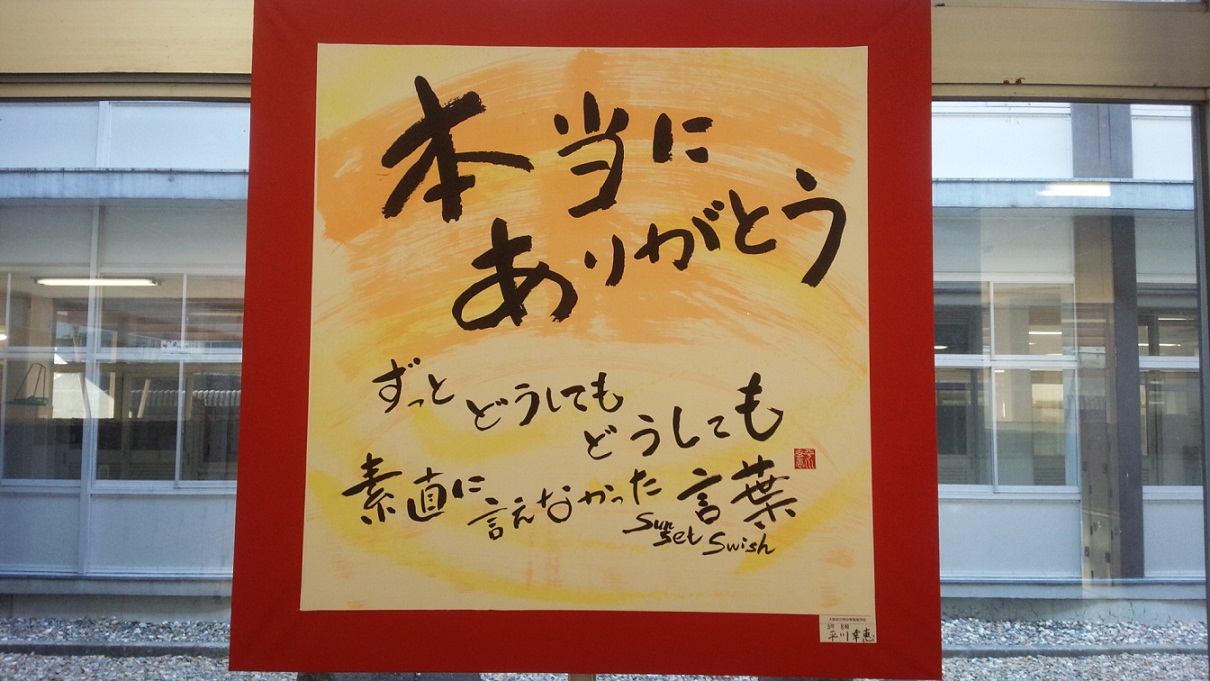 本当に
ありがとう
ずっと どうしても
どうしても
素直に 言えなかった 言葉
Sunset Swish
平川幸恵